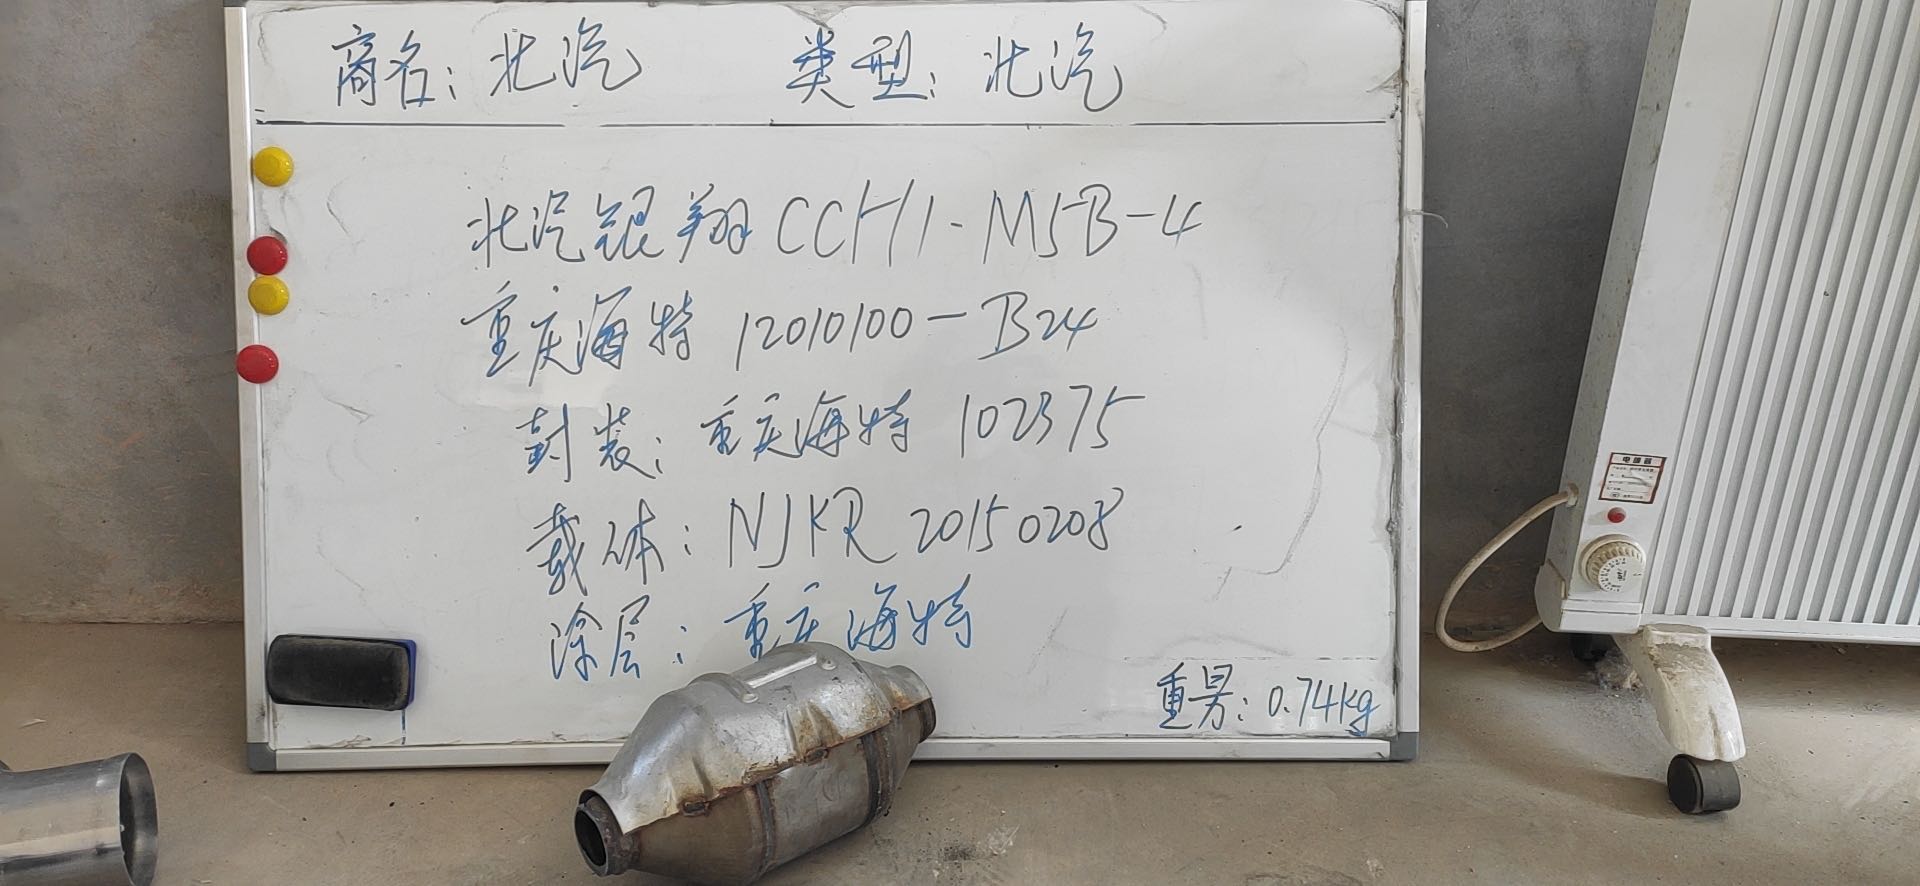 商名：北汽 类型：北汽
北汽银翔CCH1-M5B-4
重庆海特 12010100-B24
封装：重庆海特 102375
载体：NJKR 20150208
涂层：重庆海特
重另：0.74kg
电暖器